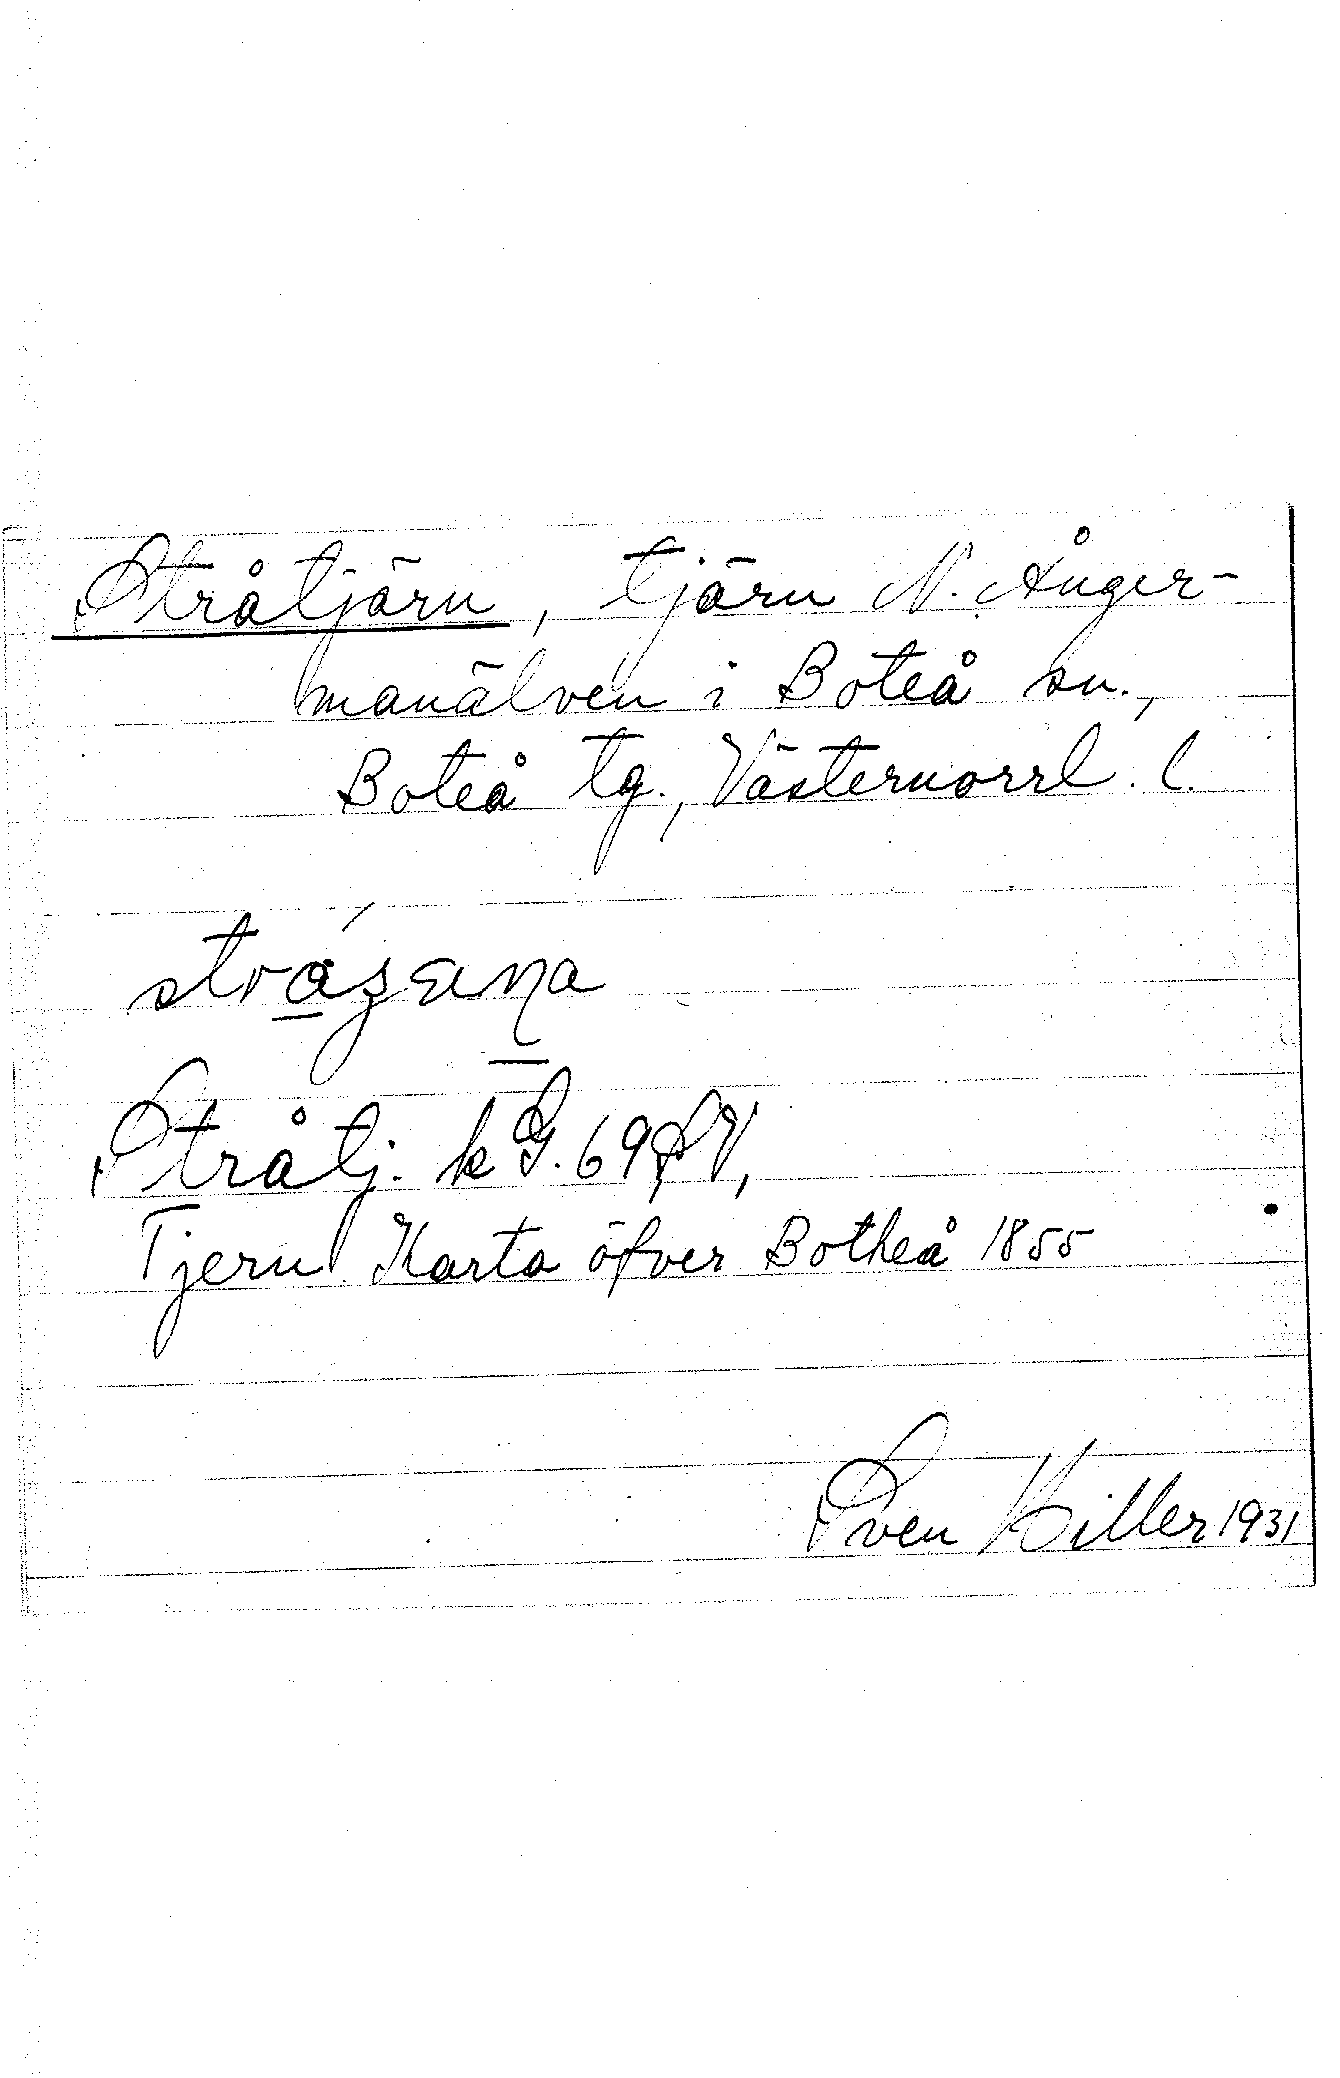 Stråtjärn, tjärn N. Ånger-
manälven i Boteå sn.,
Boteå tg., Västernorrl. l.
Stråtj. k G. 69 SV,
Tjern Karta öfver Botheå 1855
Sven Hiller 1931